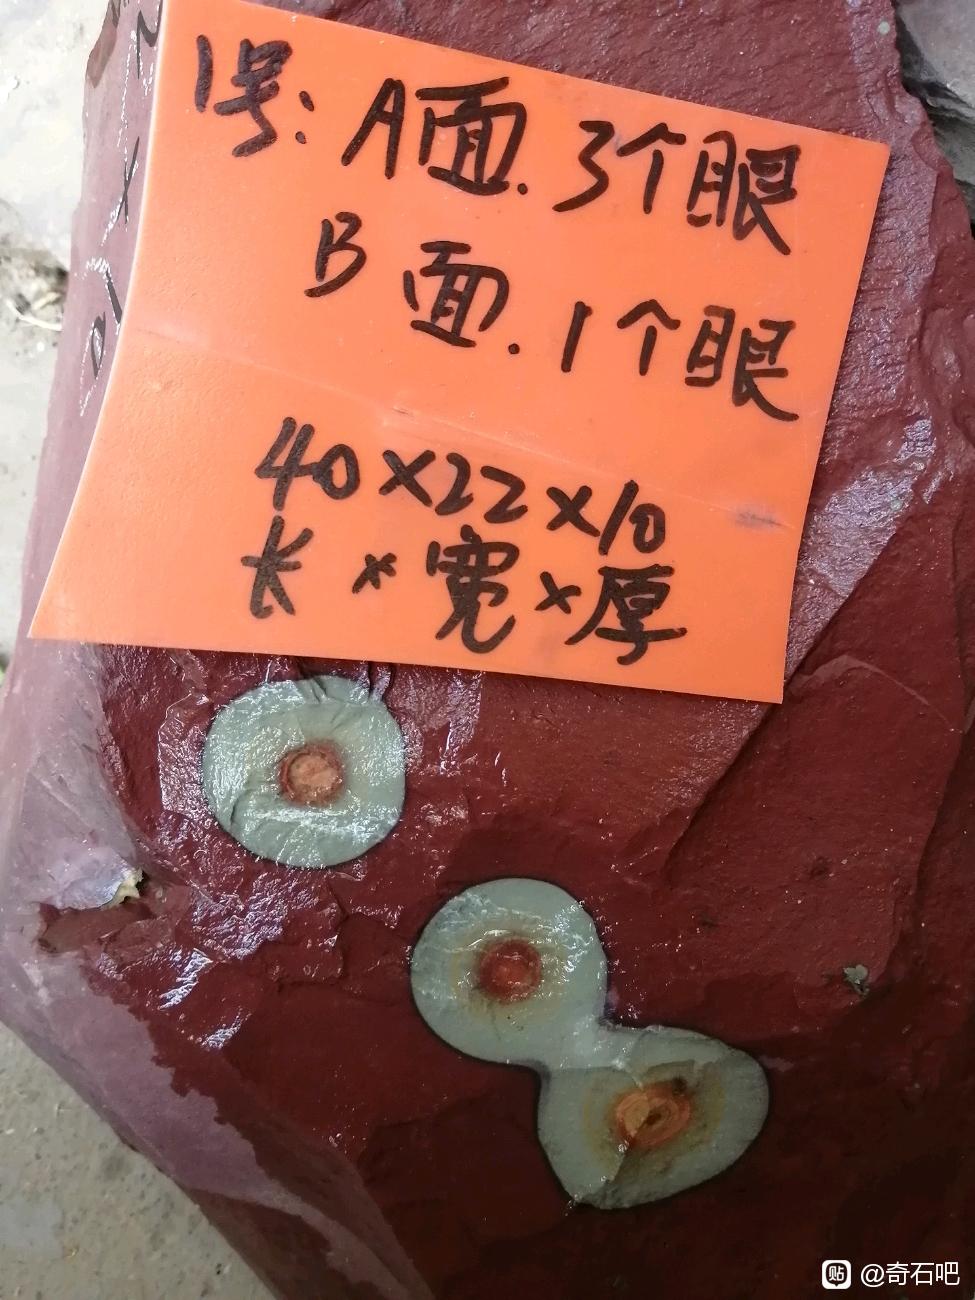 1号：A面.3个眼
B面.1个眼
40×22×10
长×宽×厚
贴 @奇石吧